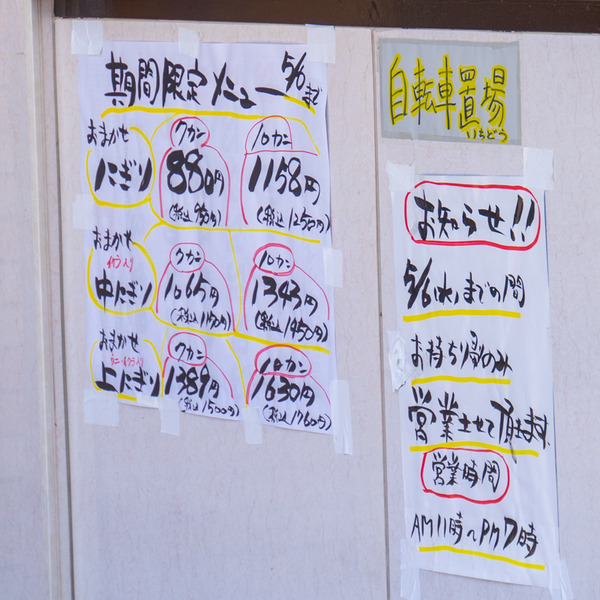 期間限定メニュー 5/6まで
おまかせ
にぎり
7カン
880円
(税込950円)
10カン
1158円
(税込1250円)
おまかせ
イクラ入り
中にぎり
7カン
1065円
(税込1150円)
10カン
1343円
(税込1450円)
おまかせ
ウニ・イクラ入り
上にぎり
7カン
1389円
(税込1500円)
10カン
1630円
(税込1760円)
自転車置場
いちどう
お知らせ!!
5/6(水)までの間
お持ち帰りのみ
営業させて頂きます
営業時間
AM11時~PM7時